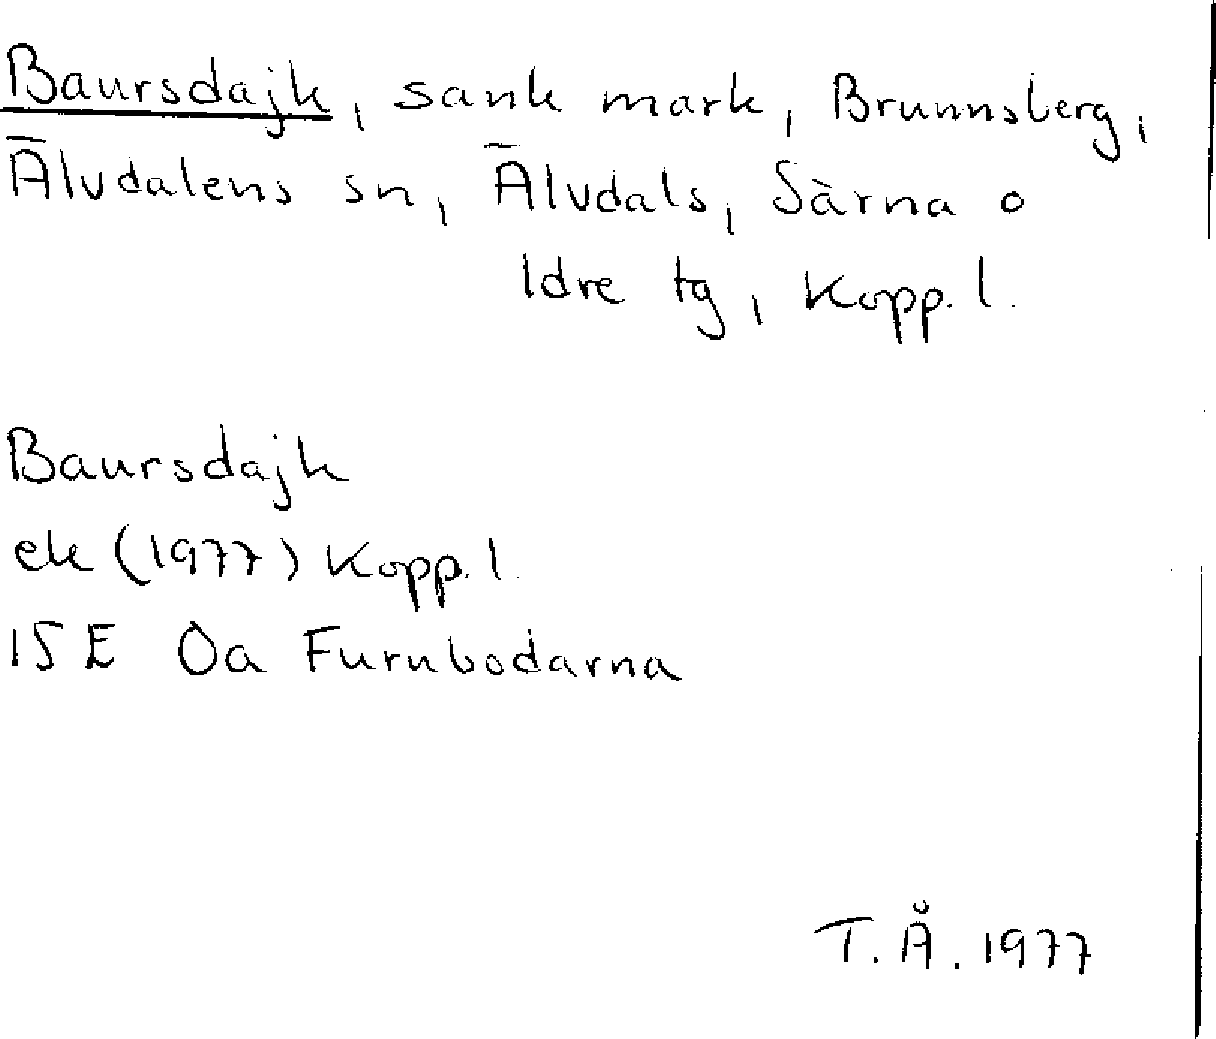 Baursdajk, sank mark, Brunnsberg,
Älvdalens sn, Älvdals, Särna o
Idre tg, Kopp. l.
Baursdajk
ek (1977) Kopp. l.
15E 0a Furubodarna
T. Å. 1977